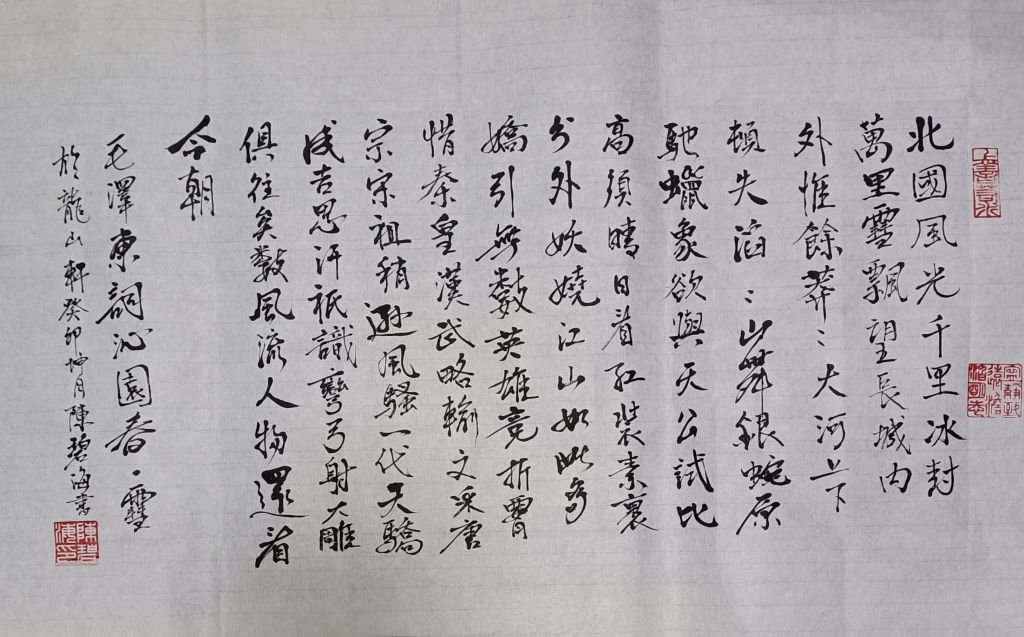 上善若水
寧靜致遠澹泊明志
北國風光千里冰封
萬里雪飄望長城內
外惟餘莽〻大河上下
頓失滔〻山舞銀蛇原
馳蠟象欲與天公試比
高須晴日看紅裝素裹
分外妖嬈江山如此多
嬌引無數英雄竞折腰
惜秦皇漢武略輸文采唐
宗宋祖稍遜風騷一代天驕
成吉思汗祇識彎弓射大雕
俱往矣數風流人物還看
今朝
毛澤東詞沁園春·雪
於龍山軒癸卯坤月陳碧海書
陳碧海印